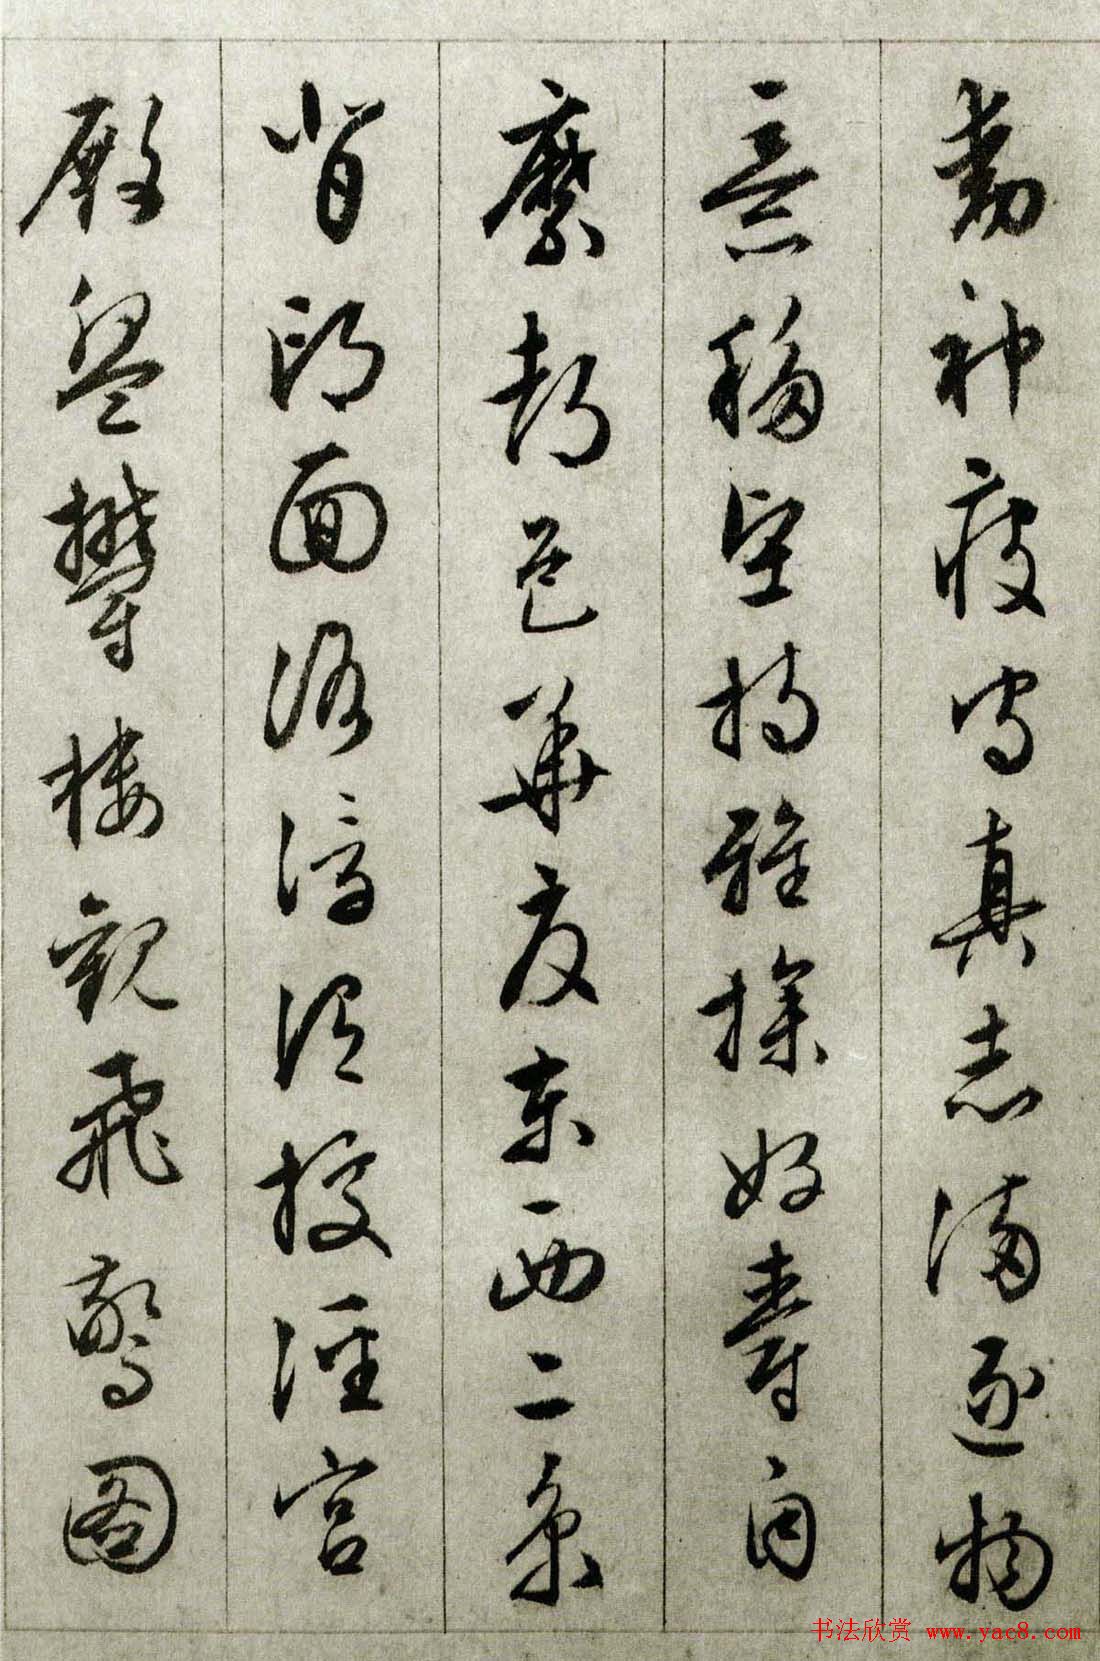 動神疲守真志滿逐物
意移堅持雅操好爵自
縻都邑華夏東西二京
背邙面洛浮渭據涇宮
殿盤鬱樓觀飛驚圖
书法欣赏 www.yac8.com